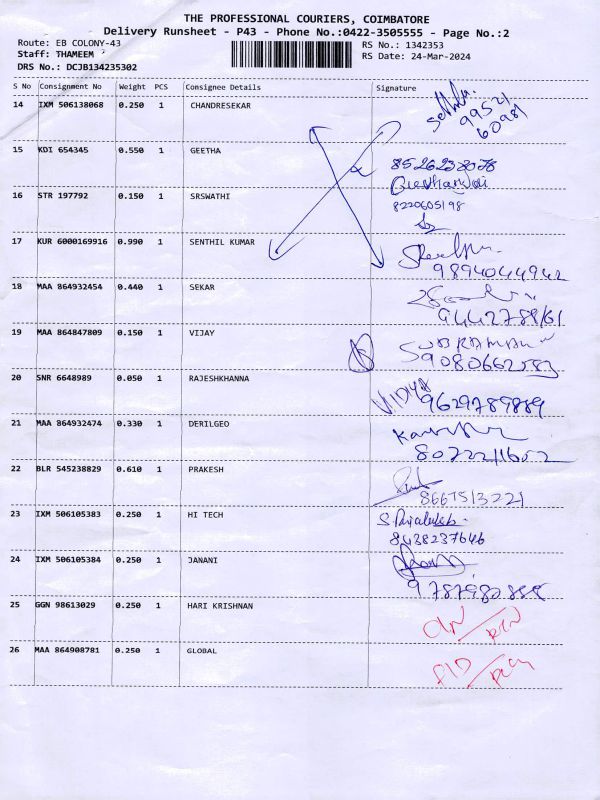 THE PROFESSIONAL COURIERS, COIMBATORE
Delivery Runsheet - P43 - Phone No.:0422-3505555 - Page No.:2
Route: EB COLONY-43
RS No.: 1342353
Staff: THAMEEM
RS Date: 24-Mar-2024
DRS No.: DCJB134235302
S No Consignment No Weight PCS Consignee Details Signature
14 IXM 506138068 0.250 1 CHANDRESEKAR
99521
60981
15 KDI 654345 0.550 1 GEETHA
8526238078
16 STR 197792 0.150 1 SRSWATHI
8220605198
17 KUR 6000169916 0.990 1 SENTHIL KUMAR
9894044942
18 MAA 864932454 0.440 1 SEKAR
9442788161
19 MAA 864847809 0.150 1 VIJAY
SUBRAMANI
9080662583
20 SNR 6648989 0.050 1 RAJESHKHANNA
VIDYA 9629789889
21 MAA 864932474 0.330 1 DERILGEO
8072211652
22 BLR 545238829 0.610 1 PRAKESH
8667513221
23 IXM 506105383 0.250 1 HI TECH
8438237646
24 IXM 506105384 0.250 1 JANANI
25 GGN 98613029 0.250 1 HARI KRISHNAN
26 MAA 864908781 0.250 1 GLOBAL